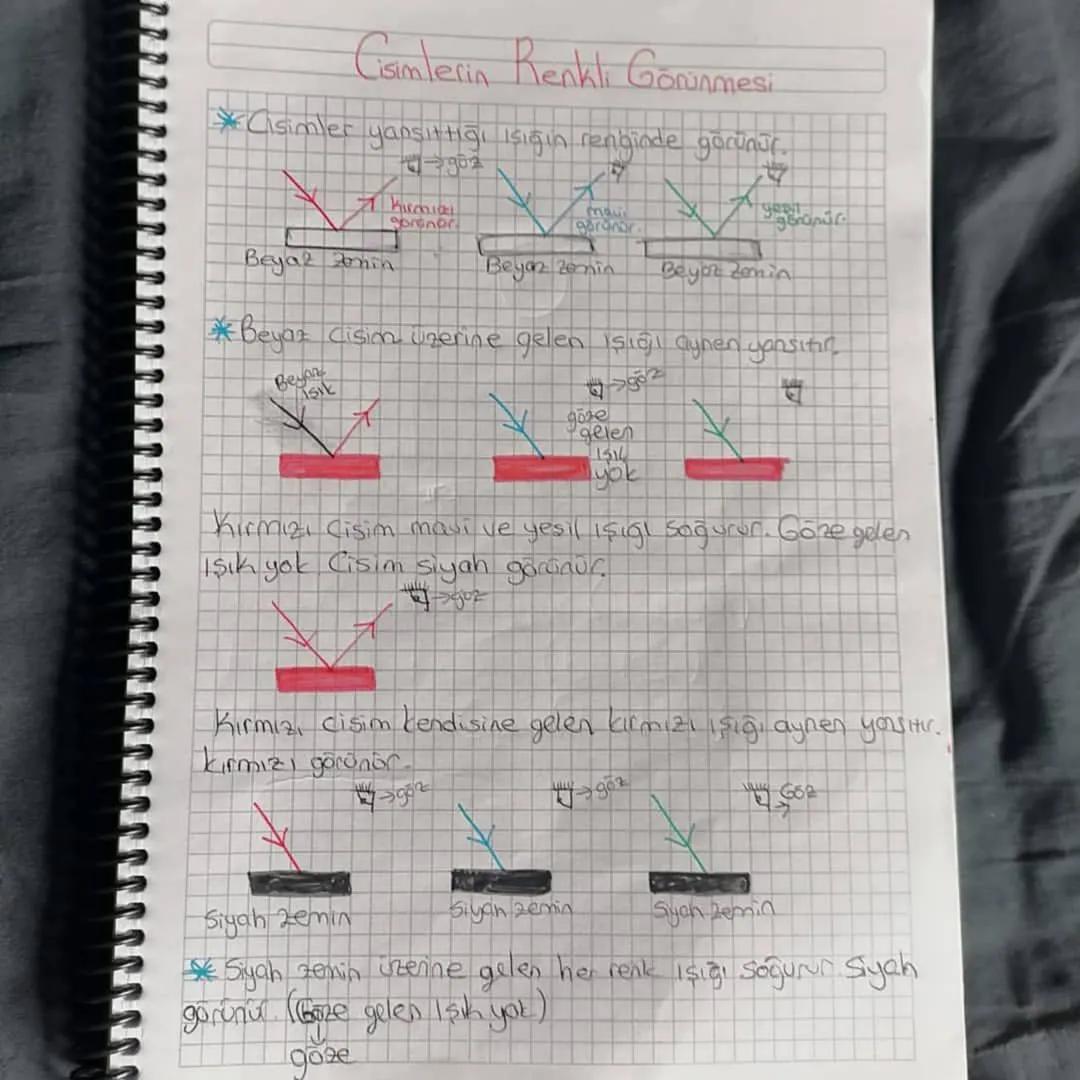 Cisimlerin Renkli Görünmesi
* Cisimler yansıttığı ışığın renginde görünür.
→göz
kırmızı
görünür.
mavi
görünür.
yeşil
görünür.
Beyaz zemin
Beyaz zemin
Beyaz zemin
* Beyaz cisim üzerine gelen ışığı aynen yansıtır.
Beyaz
ışık
→göz
göze
gelen
ışık
yok
Kırmızı cisim mavi ve yeşil ışığı soğurur. Göze gelen
ışık yok Cisim siyah görünür.
→göz
Kırmızı cisim kendisine gelen kırmızı ışığı aynen yansıtır.
kırmızı görünür.
→göz
→göz
→Göz
Siyah zemin
Siyah zemin
Siyah zemin
* Siyah zemin üzerine gelen her renk ışığı soğurur Siyah
görünür. (Göze gelen ışık yok)
göze